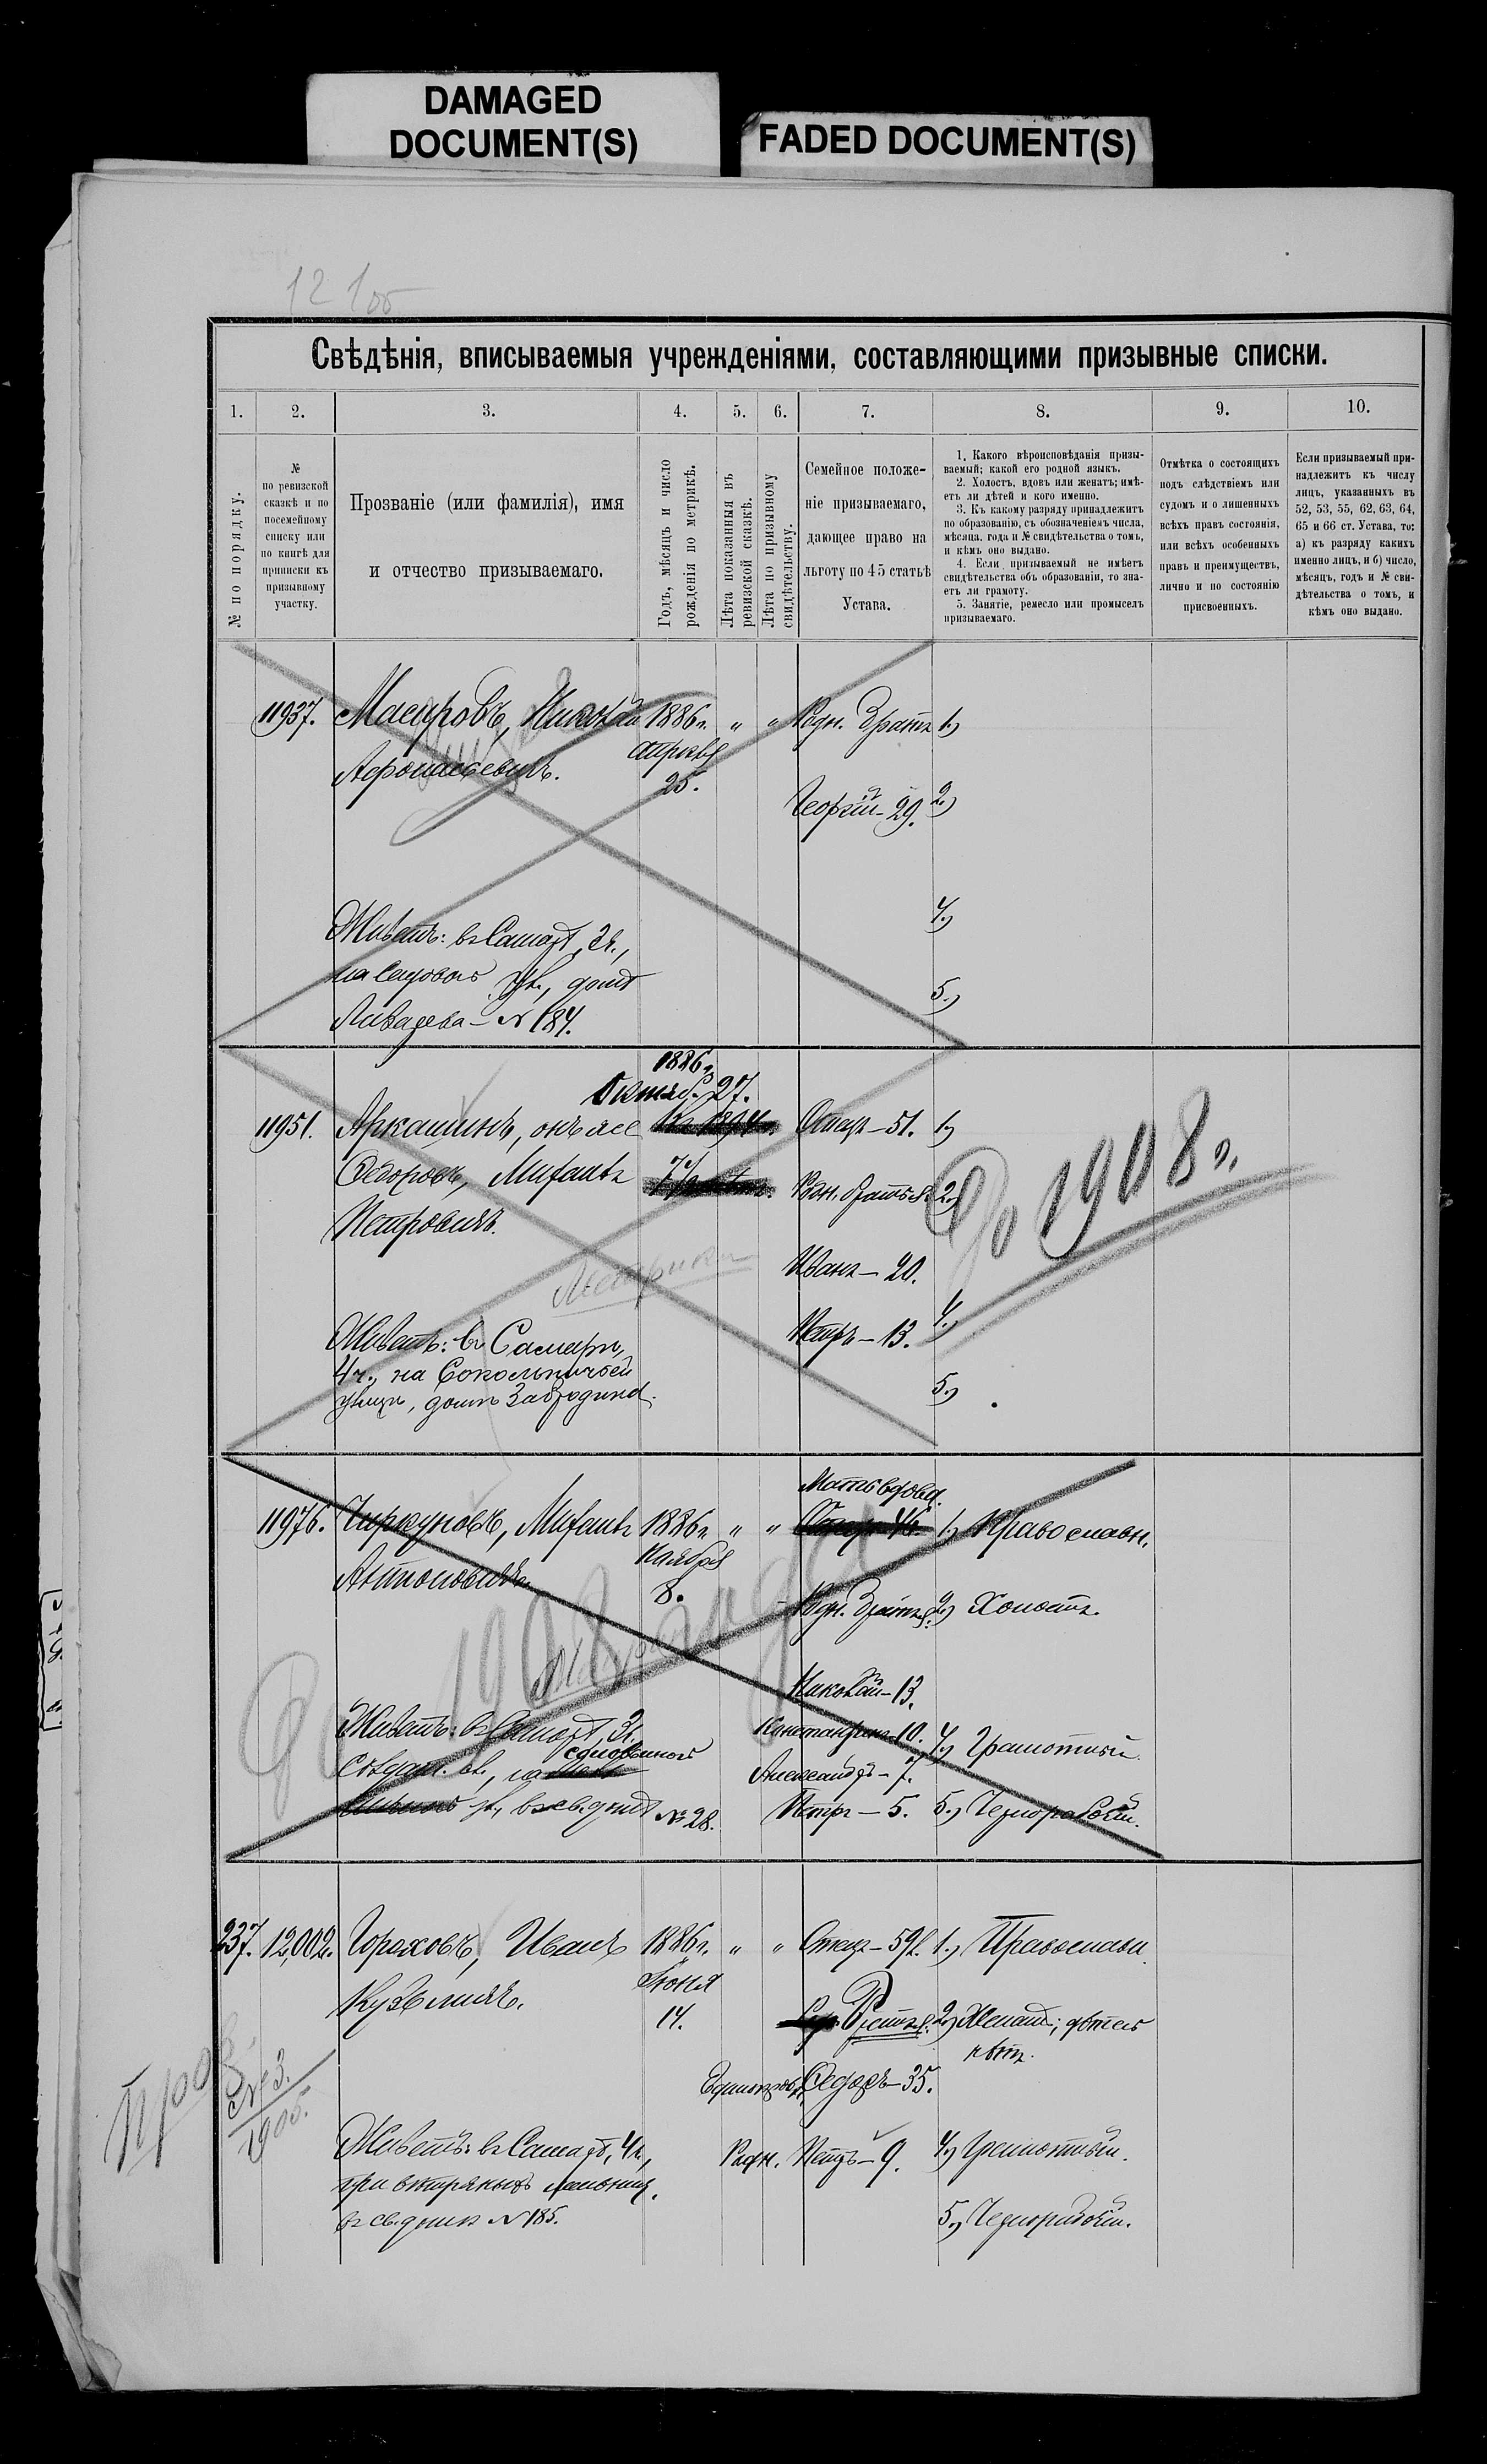 DAMAGED
DOCUMENT(S)
FADED DOCUMENT(S)
12 1об
Свѣдѣнія, вписываемыя учрежденіями, составляющими призывные списки.
1. 2. 3. 4. 5. 6. 7. 8. 9. 10.
№ по порядку.
№
по ревизской
сказкѣ и по
посемейному
списку или
по книгѣ для
приписки къ
призывному
участку.
Прозваніе (или фамилія), имя
и отчество призываемаго.
Годъ, мѣсяцъ и число
рожденія по метрикѣ.
Лѣта показанныя въ
ревизской сказкѣ.
Лѣта по призывному
свидѣтельству.
Семейное положе-
ніе призываемаго,
дающее право на
льготу по 45 статьѣ
Устава.
1. Какого вѣроисповѣданія призы-
ваемый; какой его родной языкъ.
2. Холостъ, вдовъ или женатъ; имѣ-
етъ ли дѣтей и кого именно.
3. Къ какому разряду принадлежитъ
по образованію, съ обозначеніемъ числа,
мѣсяца, года и № свидѣтельства о томъ,
и кѣмъ оно выдано.
4. Если призываемый не имѣетъ
свидѣтельства объ образованіи, то зна-
етъ ли грамоту.
5. Занятіе, ремесло или промыселъ
призываемаго.
Отмѣтка о состоящихъ
подъ слѣдствіемъ или
судомъ и о лишенныхъ
всѣхъ правъ состоянія,
или всѣхъ особенныхъ
правъ и преимуществъ,
лично и по состоянію
присвоенныхъ.
Если призываемый при-
надлежитъ къ числу
лицъ, указанныхъ въ
52, 53, 55, 62, 63, 64,
65 и 66 ст. Устава, то:
а) къ разряду какихъ
именно лицъ, и б) число,
мѣсяцъ, годъ и № сви-
дѣтельства о томъ, и
кѣмъ оно выдано.
11937. Николай 1886г. " " Родн. братъ 1)
Афонасьевичъ. апрѣля
25.
Георгій - 29. 2)
4)
Живетъ: въ Самарѣ,
на Садовой ул., домъ 5)
№ 184.
1886г.
Октяб. 27.
11951. Аркашинъ, онъ же Отецъ - 51. 1)
Ѳедоровъ, Михаилъ Родн. братья 2)
Петровичъ.
До 1908 г.
Метрики
Иванъ - 20.
Петръ - 13. 4)
Живетъ: въ Самарѣ,
4 ч., на Сокольничьей
улицѣ, домъ 5)
Мать вдова.
11976. Чиркуновъ, Михаилъ 1886г. " " 1) Православн.
Антоновичъ. Ноября
8.
Родн. братья: 2) Холостъ.
До 1908 года
Николай - 13.
Живетъ: въ Самарѣ, 3ч. Константинъ - 10. 4) Грамотный.
Александръ - 7.
ул., въ св. домѣ № 28. Петръ - 5. 5) Чернорабочій.
237. 12,002. Гороховъ, Иванъ 1886г. " " Отецъ - 59 л. 1) Православн.
Кузьмичъ. Іюня
14.
Братья: 2) Женатъ; дѣтей
нѣтъ.
Единокров. Ѳедоръ - 35.
№ 3.
1905.
Живетъ: въ Самарѣ, 4ч., Родн. Петръ - 9. 4) Грамотный.
при вѣтряныхъ мельниц.
въ св. домѣ № 185. 5) Чернорабочій.